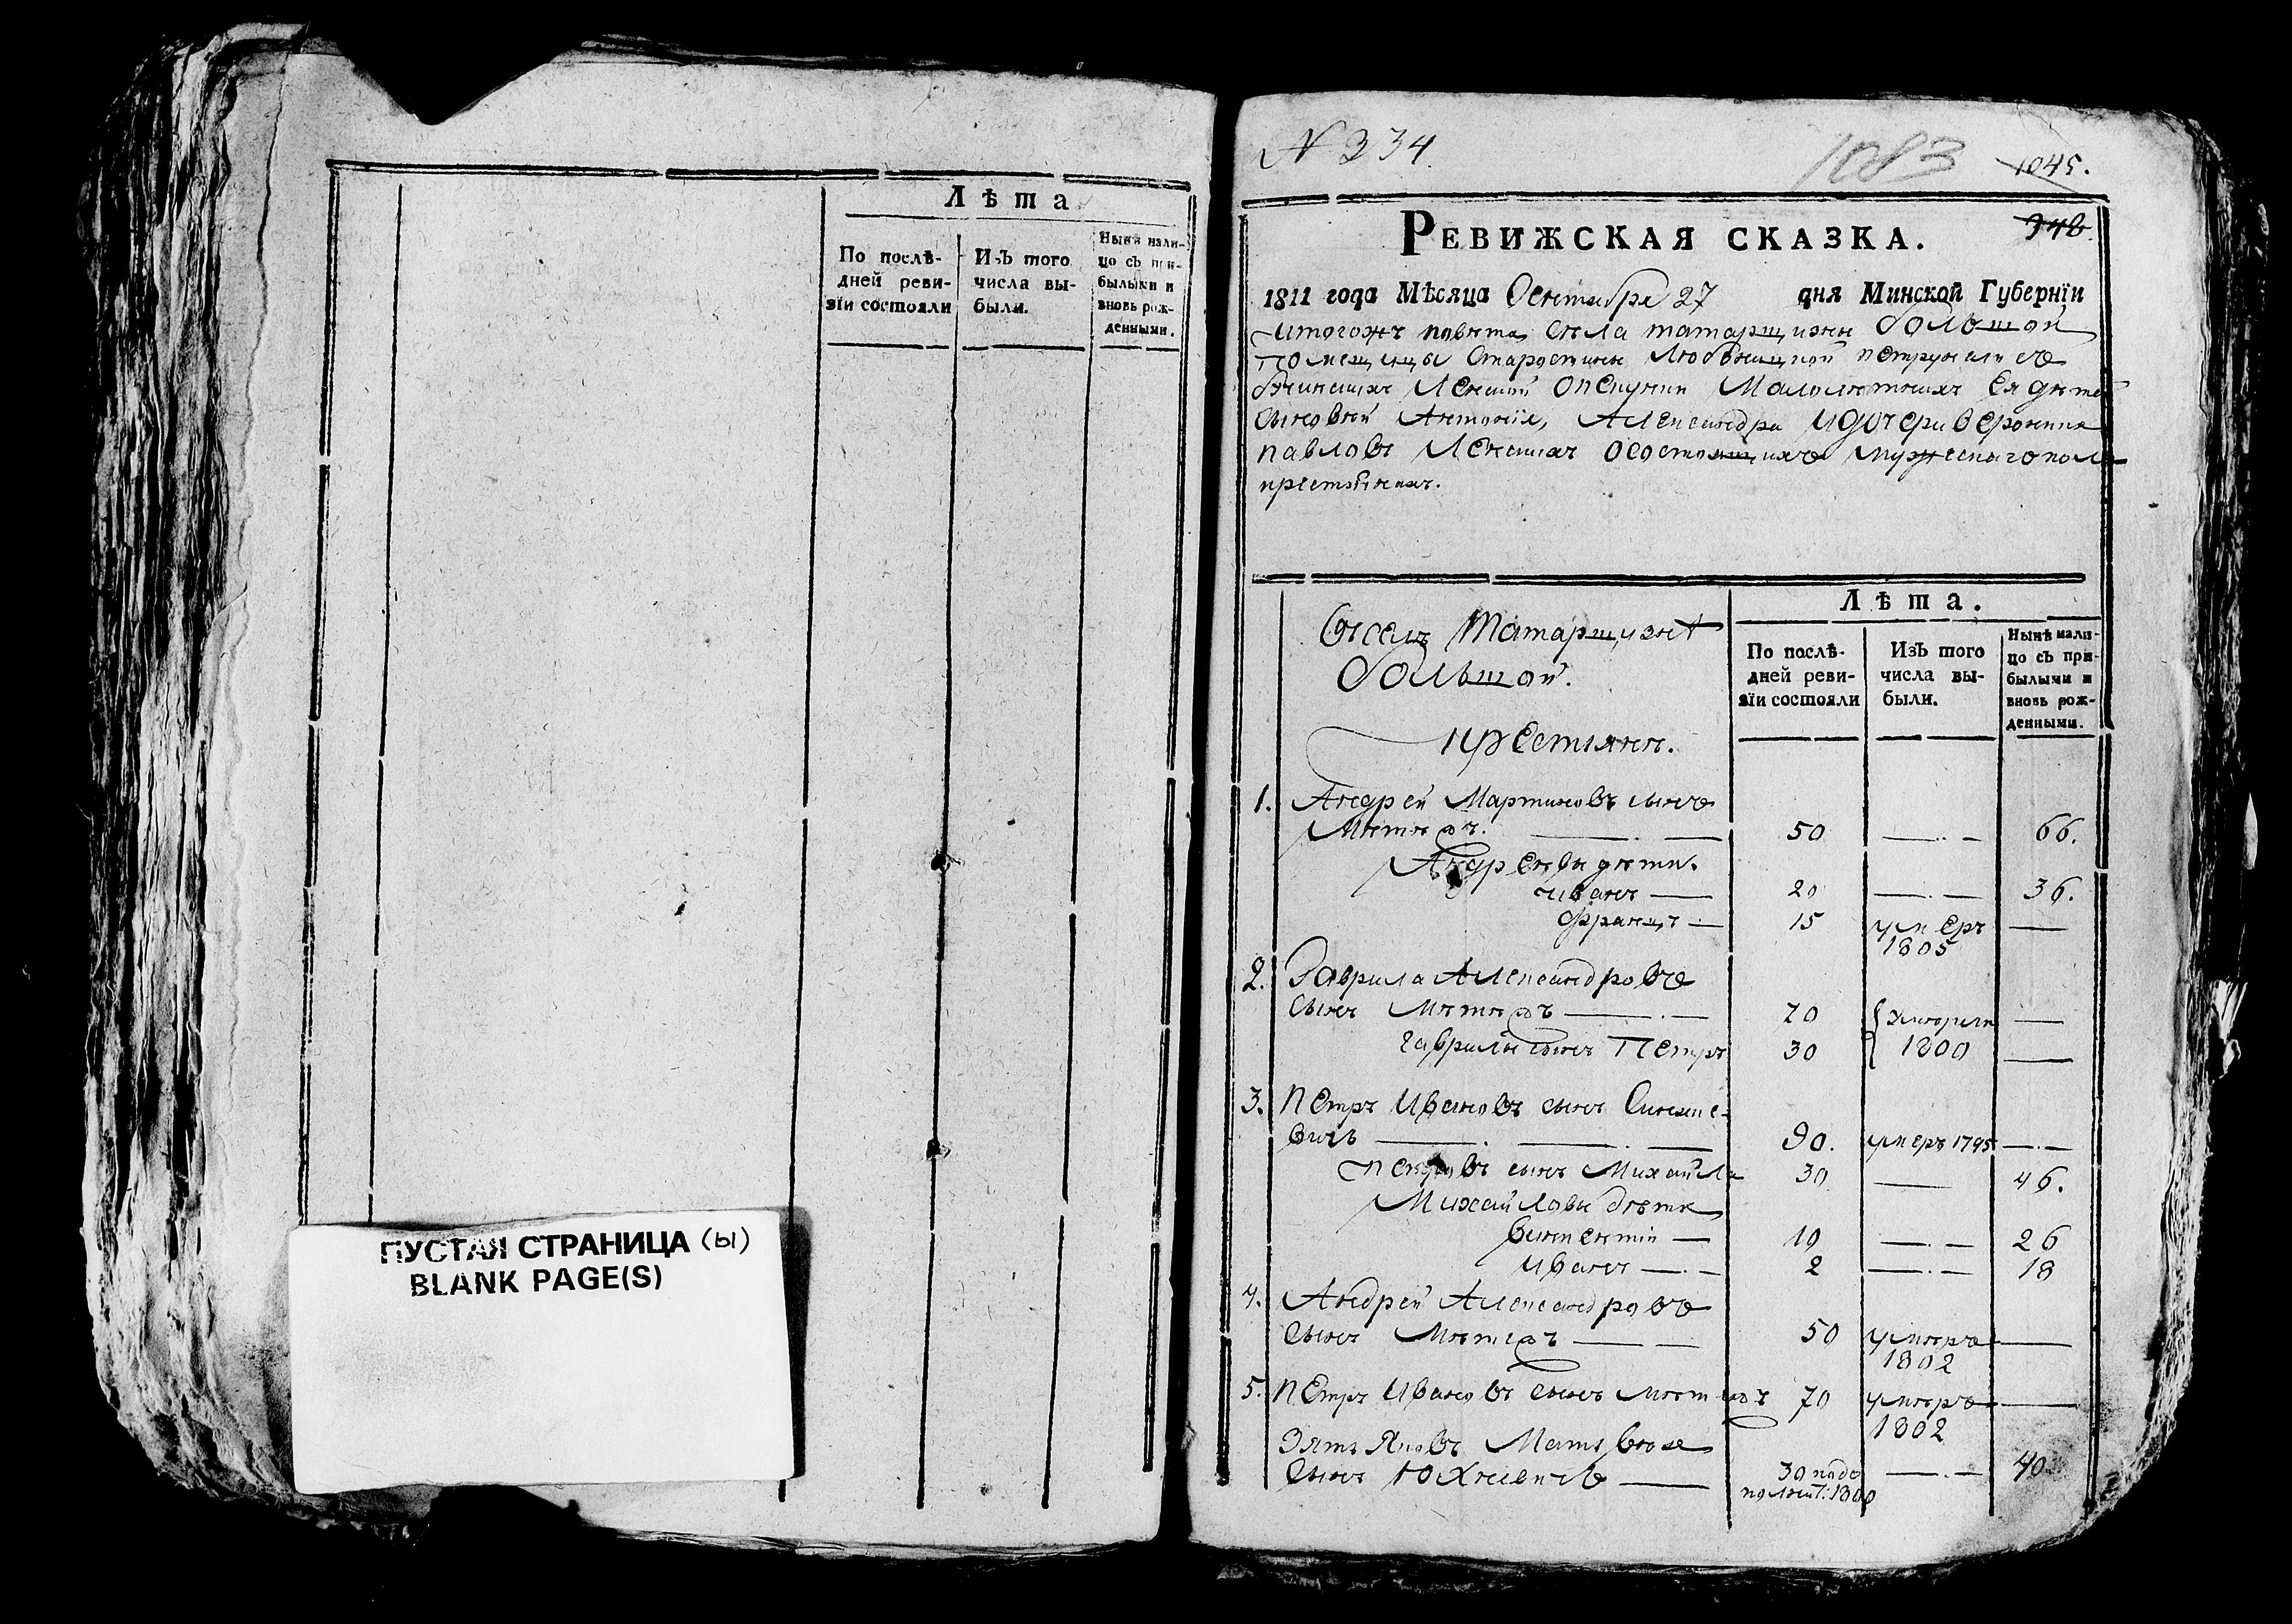 Лѣта
По послѣ-
дней реви-
зїи состояли
Изъ того
числа вы-
были.
Нынѣ нали-
цо съ при-
былыми и
вновь рож-
денными.
ПУСТАЯ СТРАНИЦА (ы)
BLANK PAGE(S)
N 334.
1083
1045.
348.
РЕВИЖСКАЯ СКАЗКА.
1811 года Мѣсяца Октября 27 дня Минской Губернїи
и тогожъ повѣта села татарщизны большой
помещицы Старостины
опекунки Малолѣтныхъ Ея дѣтей
сыновей Антонія, Александра и дочери вероники
павловъ о состоящихъ мужескаго пола
крестьянахъ.
Татарщизнѣ
большой.
крестіянъ.
Лѣта.
По послѣ-
дней реви-
зїи состояли
Изъ того
числа вы-
были.
Нынѣ нали-
цо съ при-
былыми и
вновь рож-
денными.
1. Андрей Мартиновъ сынъ
50 66.
Андреевы дѣти.
Иванъ 20 36.
Францъ 15 умеръ
1805
2. Гаврила Александровъ
сынъ 70 умерли
гаврилы сынъ Петръ 30 1800
3. Петръ Ивановъ сынъ
вичъ 90. умеръ 1795
петровъ сынъ Михайла 30 46.
Михайловы дѣти
викентій 10 26
Иванъ 2 18
4. Андрей Александровъ
сынъ 50 умеръ
1802
5. Петръ Ивановъ сынъ 70 умеръ
1802
Зять Яковъ
сынъ 30 40